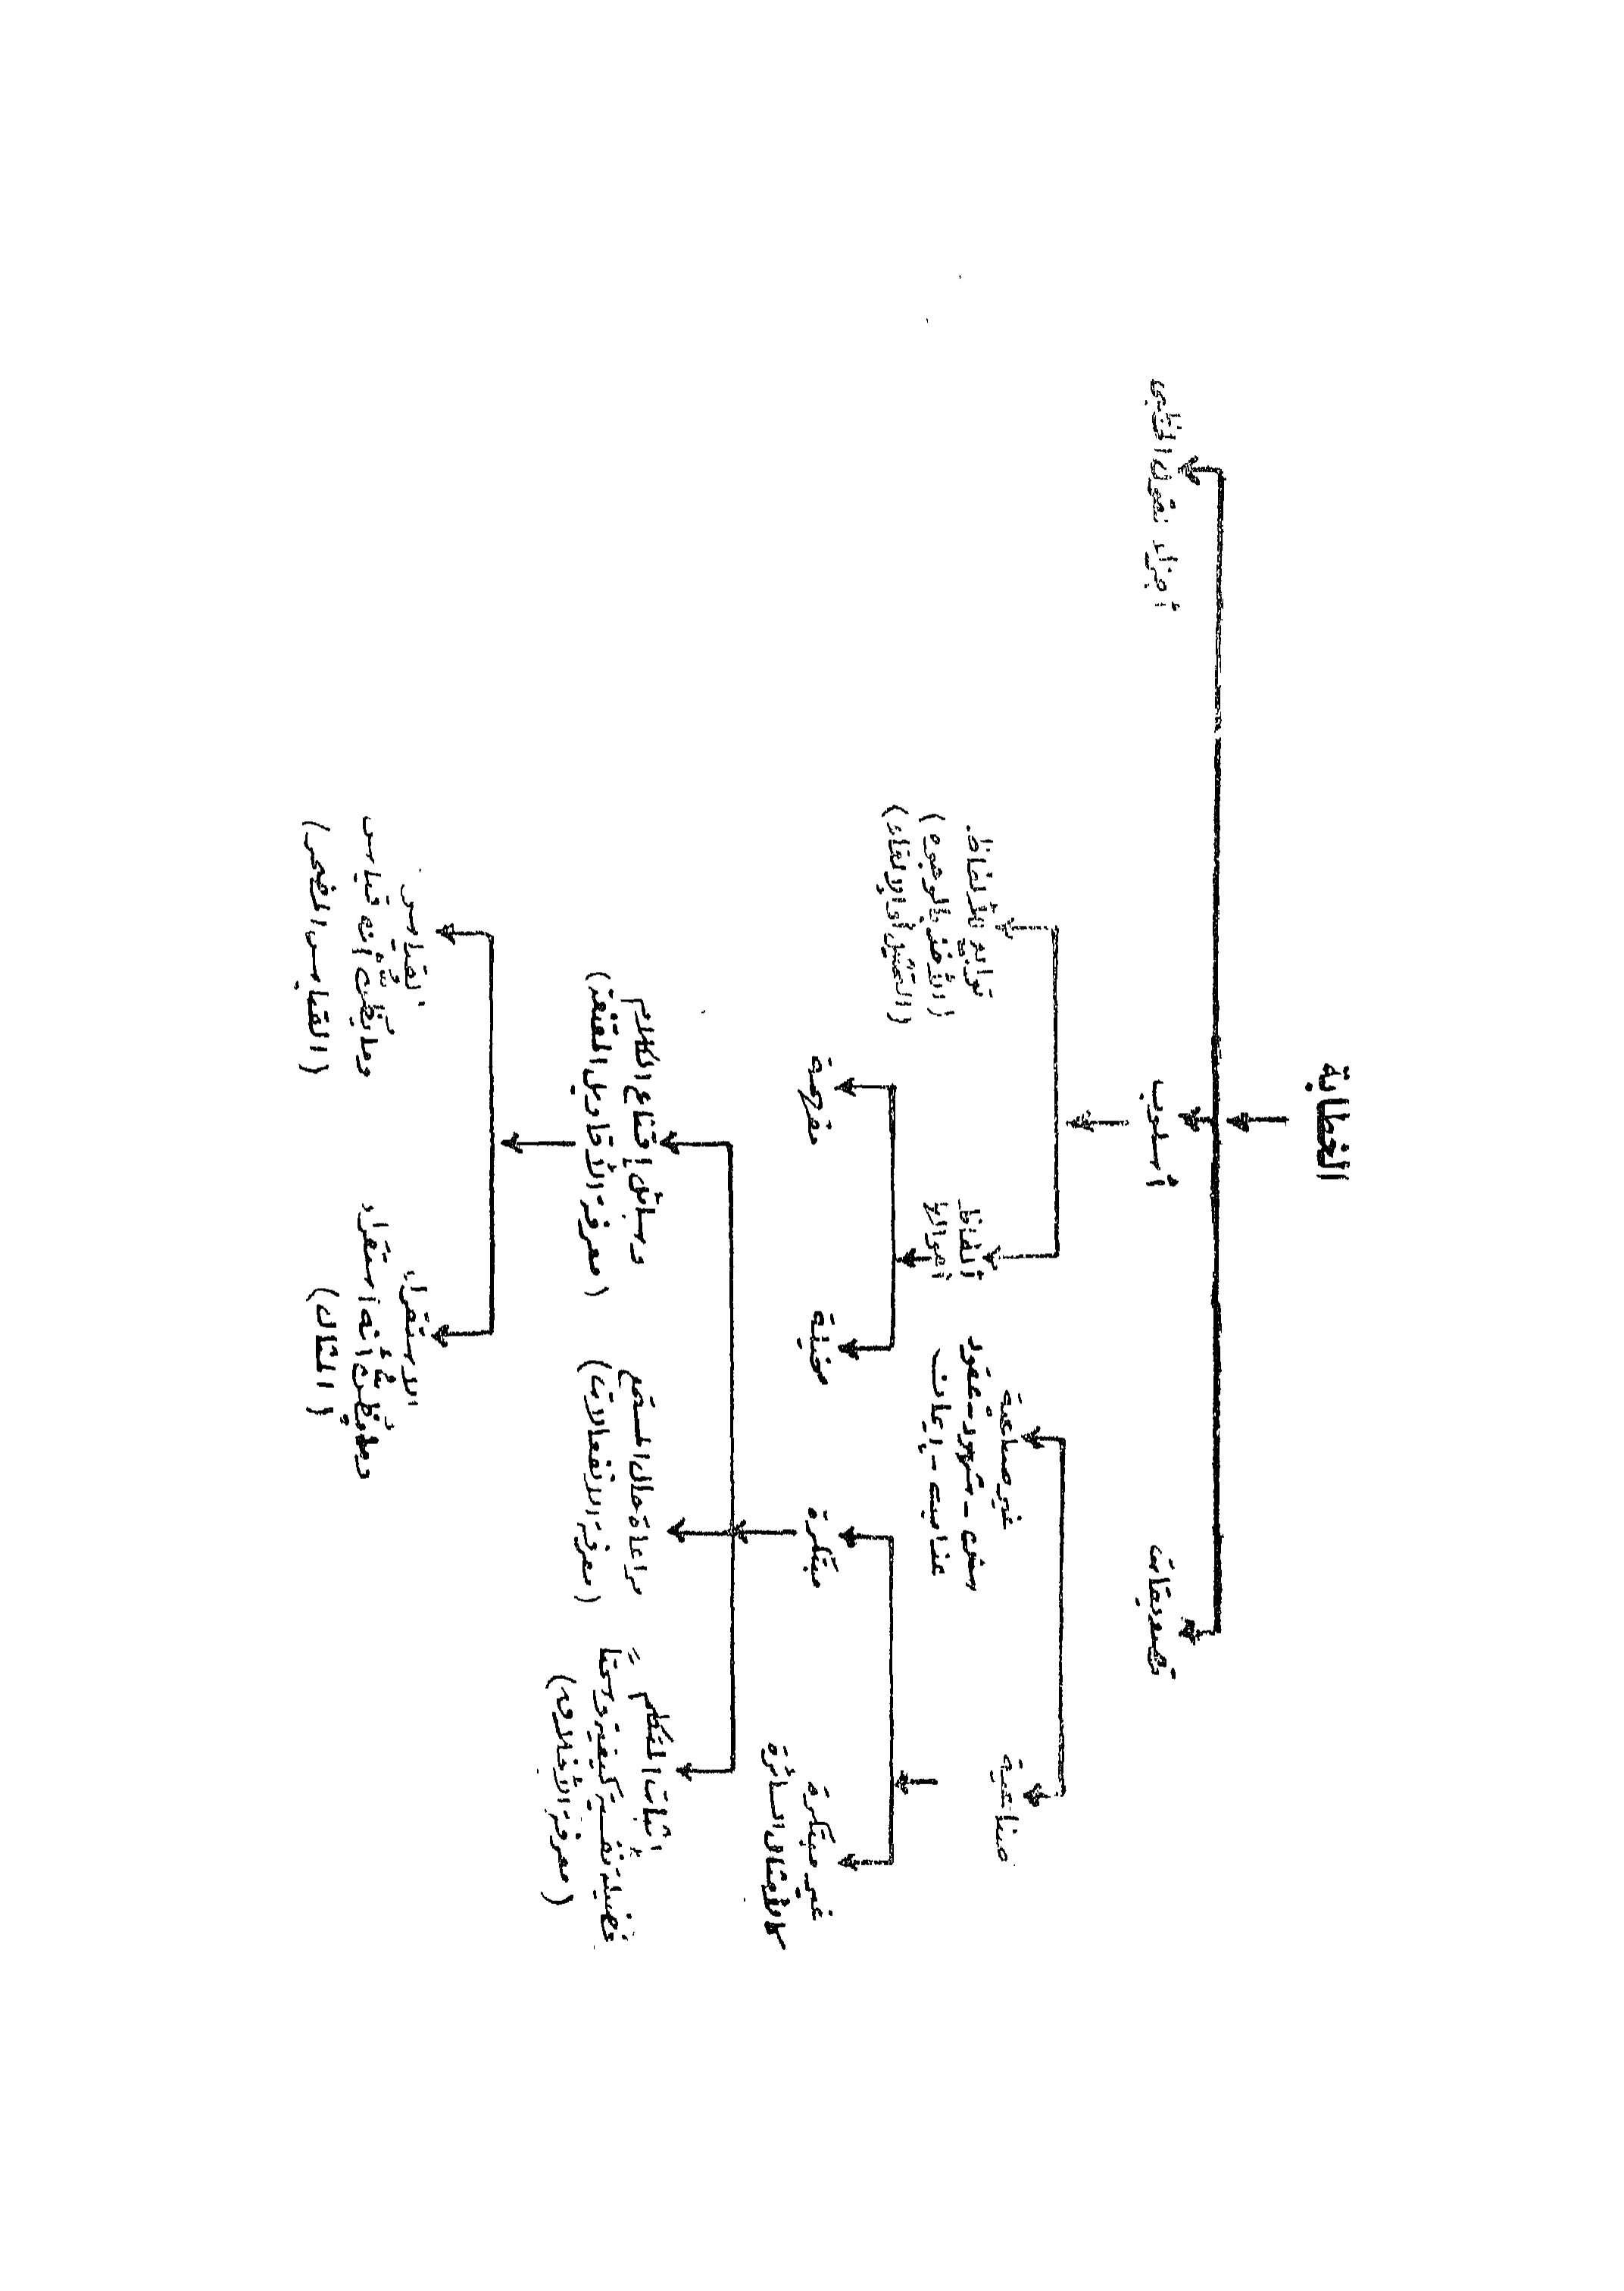 الخطابة
تصديقات
أسلوب
أجزاء القول الخطبى
صناعية
غير صناعية
سنن - شهود - عقود
عذاب - إيمان
ألفاظ
أحوالها
توابع للألفاظ
(الأخذ بالوجوه)
(التمثيل أو الإلقاء)
غير مبتكرة
كالأمثال السائرة
مبتكرة
مخيلة
مفرحة
إثبات المتكلم
فضيلة نفسية كيفية وسمتاً
(معرفة الأخلاق)
مراعاة حال المستمع
(معرفة الانفعالات)
وسائل إقناع الكلام
(معرفة الأقاويل المقنعة)
الاستقراء
وما يُظن أنه استقراء
(المثال)
القياس
وما يُظن أنه قياس
(القياس المضمر)